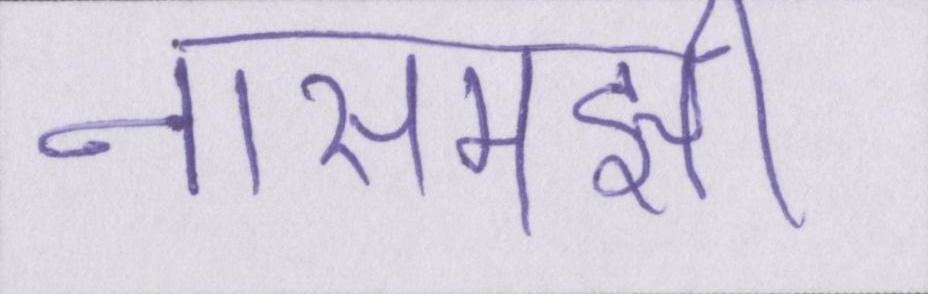 नासमझी